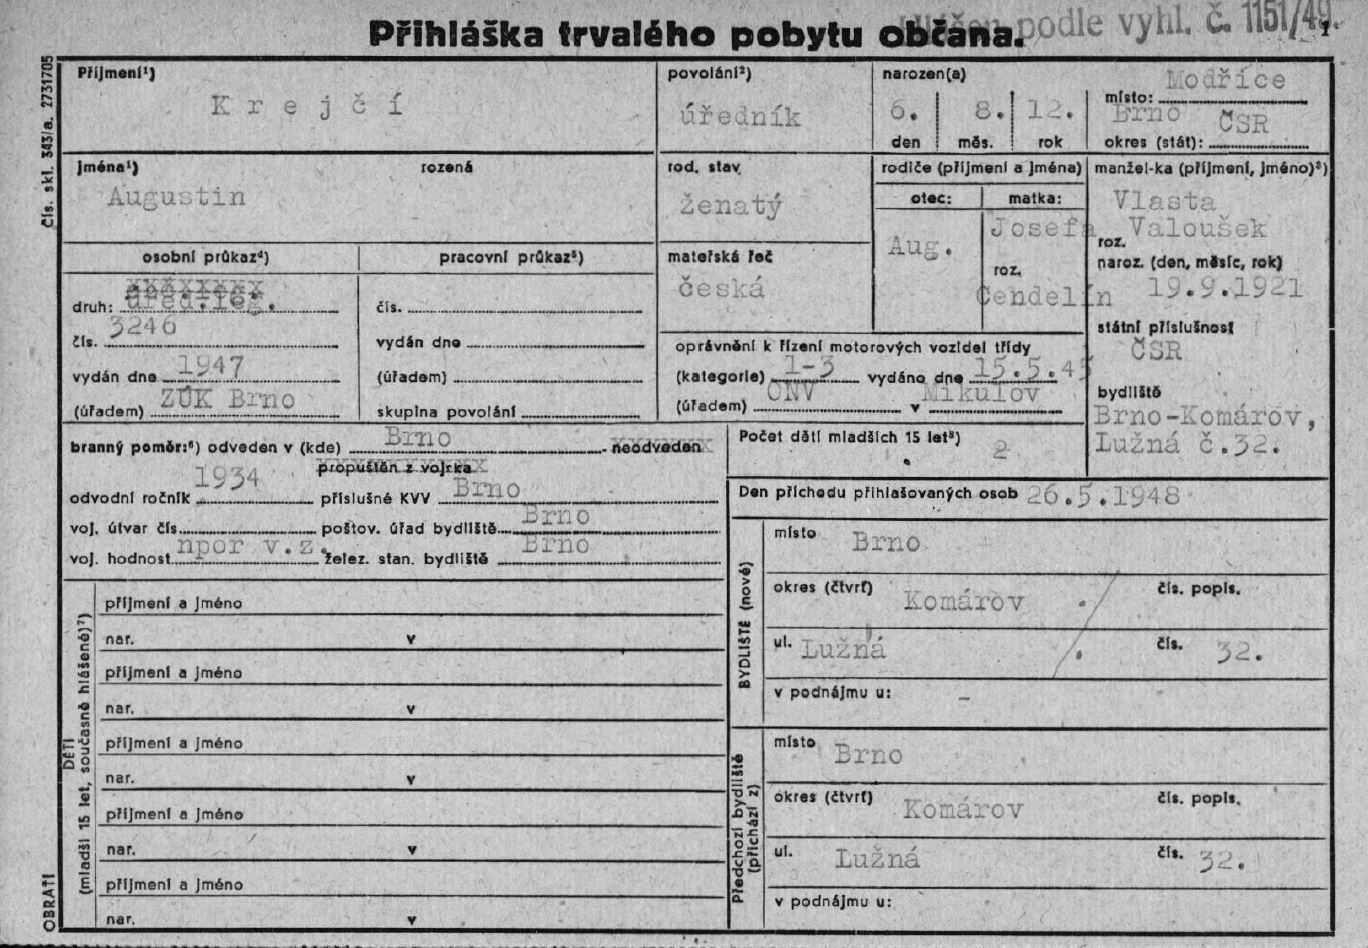 Přihláška trvalého pobytu občana.
podle vyhl. č. 1151/49.
Čís. skl. 343/a. 2731705
Příjmení¹)
Krejčí
povolání²)
úředník
narozen(a)
6. 8. 12.
den měs. rok
Modřice
místo:
Brno ČSR
okres (stát):
Jména¹) rozená
Augustin
rod. stav
ženatý
rodiče (příjmení a jména)
otec: matka:
Aug.
Josefa
roz.
Cendelín
manžel-ka (příjmení, jméno)³)
Vlasta
Valoušek
roz.
naroz. (den, měsíc, rok)
19.9.1921
státní příslušnost
ČSR
bydliště
Brno-Komárov,
Lužná č.32.
osobní průkaz⁴) pracovní průkaz⁵)
xxxxxxxx
druh: úřed.leg.
čís. 3246
vydán dne 1947
(úřadem) ZÚK Brno
čís.
vydán dne
(úřadem)
skupina povolání
mateřská řeč
česká
oprávnění k řízení motorových vozidel třídy
(kategorie) 1-3 vydáno dne 15.5.45
(úřadem) ONV v Mikulov
branný poměr:⁶) odveden v (kde) Brno - neodveden
propuštěn z vojska
odvodní ročník 1934 příslušné KVV Brno
voj. útvar čís. poštov. úřad bydliště Brno
voj. hodnost npor v.z. želez. stan. bydliště Brno
Počet dětí mladších 15 let⁸) 2
Den příchodu přihlašovaných osob 26.5.1948
BYDLIŠTĚ (nové)
místo Brno
okres (čtvrť) Komárov čís. popis.
ul. Lužná čís. 32.
v podnájmu u: -
Předchozí bydliště
(přichází z)
místo Brno
okres (čtvrť) Komárov čís. popis.
ul. Lužná čís. 32.
v podnájmu u:
DĚTI
(mladší 15 let, současně hlášené)⁷)
příjmení a jméno
nar. v
příjmení a jméno
nar. v
příjmení a jméno
nar. v
příjmení a jméno
nar. v
příjmení a jméno
nar. v
OBRAŤ!